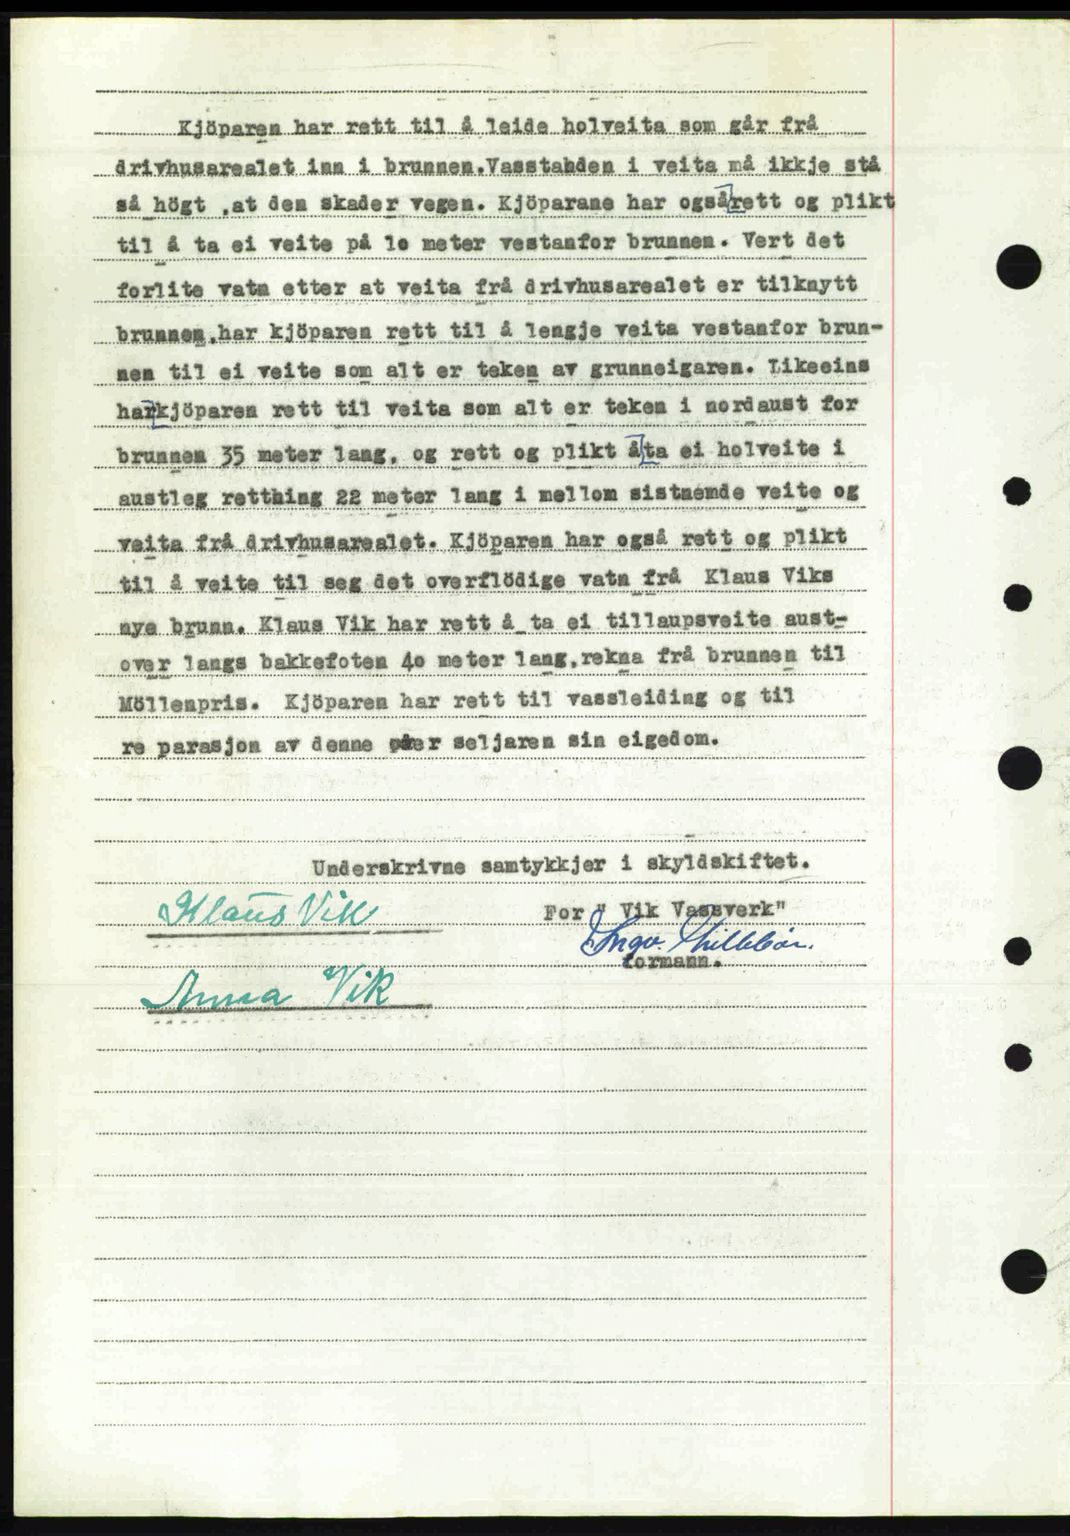 Kjöparen har rett til å leide holveita som går frå
drivhusarealet inn i brunnen.Vasstanden i veita må ikkje stå
så högt ,at den skader vegen. Kjöparane har også rett og plikt
til å ta ei veite på lo meter vestanfor brunnen. Vert det
forlite vatn etter at veita frå drivhusarealet er tilknytt
brunnen,har kjöparen rett til å lengje veita vestanfor brun-
nen til ei veite som alt er teken av grunneigaren. Likeeins
har kjöparen rett til veita som alt er teken i nordaust for
brunnen 35 meter lang, og rett og plikt å ta ei holveite i
austleg retthing 22 meter lang i mellom sistnemde veite og
veita frå drivhusarealet. Kjöparen har også rett og plikt
til å veite til seg det overflödige vatn frå Klaus Viks
nye brunn. Klaus Vik har rett å ta ei tillaupsveite aust-
over langs bakkefoten 4o meter lang,rekna frå brunnen til
Möllenpris. Kjöparen har rett til vassleiding og til
re parasjon av denne over seljaren sin eigedom.
Underskrivne samtykkjer i skyldskiftet.
Klaus Vik
For " Vik Vassverk"
Ingv.
formann.
Anna Vik